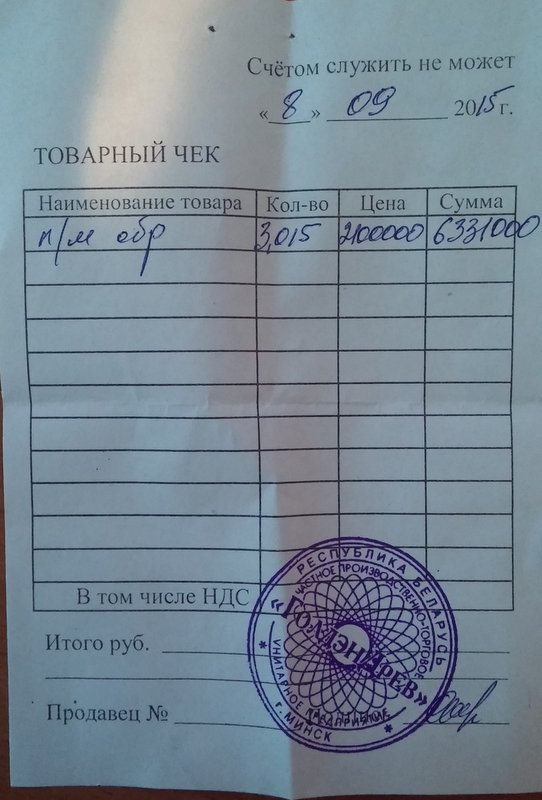 Счётом служить не может
« 8 » 09 2015 г.
ТОВАРНЫЙ ЧЕК
Наименование товара Кол-во Цена Сумма
п/м обр 3,015 2100000 6331000
В том числе НДС
Итого руб.
Продавец №
РЕСПУБЛИКА БЕЛАРУСЬ
ЧАСТНОЕ ПРОИЗВОДСТВЕННО-ТОРГОВОЕ
УНИТАРНОЕ ПРЕДПРИЯТИЕ
г. МИНСК